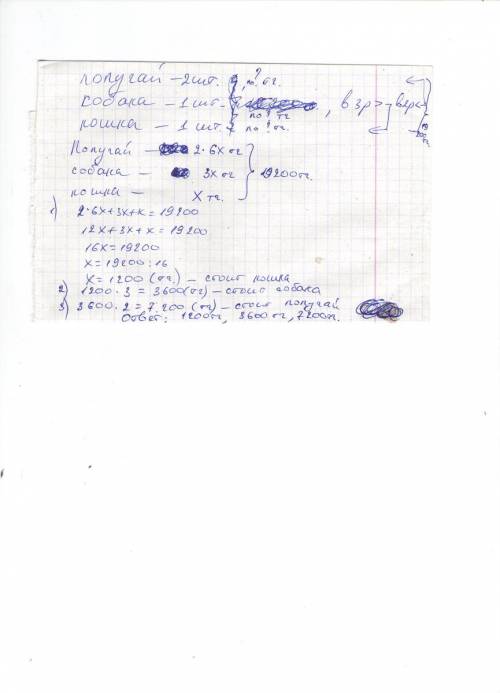 попугай — 2 шт. по ? тг.
собака — 1 шт. по ? тг , в 3р >
кошка — 1 шт. по ? тг.
Попугай — 2·6х тг
собака — 3х тг 19200тг.
кошка — х тг
1) 2·6х+3х+х=19200
12х+3х+х=19200
16х=19200
х=19200:16
х=1200 (тг) — стоит кошка
2) 1200·3=3600(тг) — стоит собака
3) 3600·2=7200 (тг) — стоит попугай
Ответ: 1200тг, 3600тг, 7200тг.